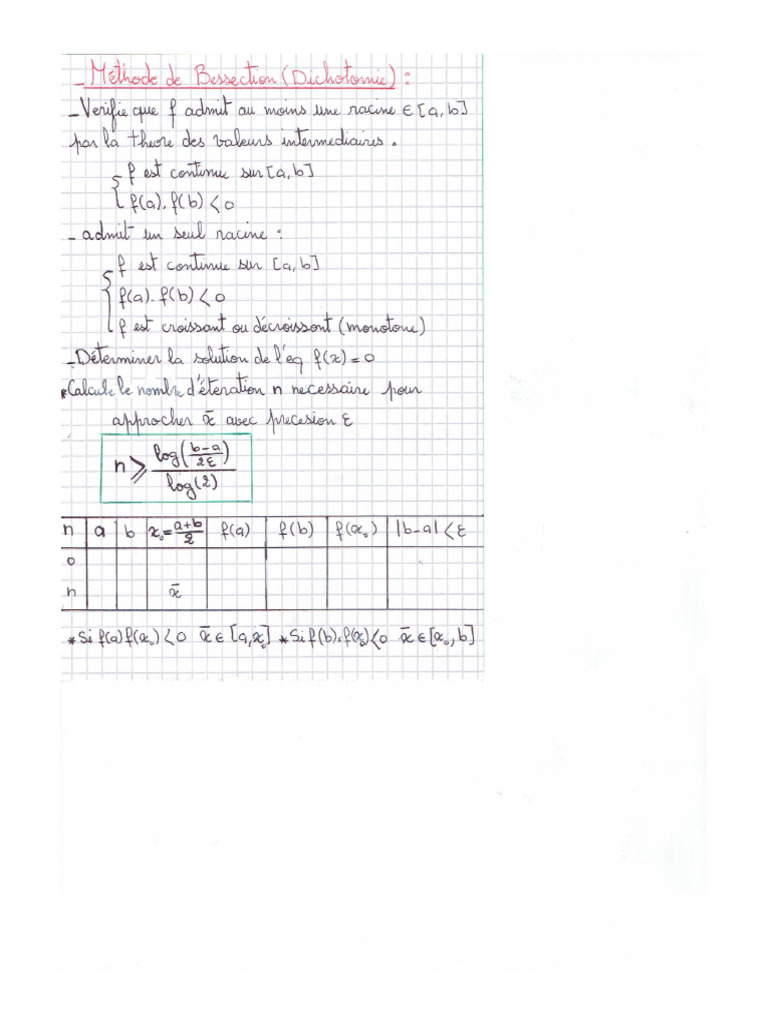 _ Méthode de Bessection (Dichotomie) :
_ Verifie que f admit au moins une racine ∈ [a, b]
par la theore des valeurs intermediaires .
{ f est continue sur [a, b]
f(a). f(b) < 0
_ admit un seul racine :
{ f est continue sur [a, b]
f(a). f(b) < 0
f est croissant ou décroissant (monotone)
_ Déterminer la solution de l'eq f(x) = 0
* Calcule le nombre d'éteration n necessaire pour
approcher x̄ avec precesion ε
n ≥ log((b-a)/(2ε)) / log(2)
n a b x₀ = (a+b)/2 f(a) f(b) f(x₀) |b-a| < ε
0
n x̄
* Si f(a) f(x₀) < 0 x̄ ∈ [a, x₀] * Si f(b). f(x₀) < 0 x̄ ∈ [x₀, b]